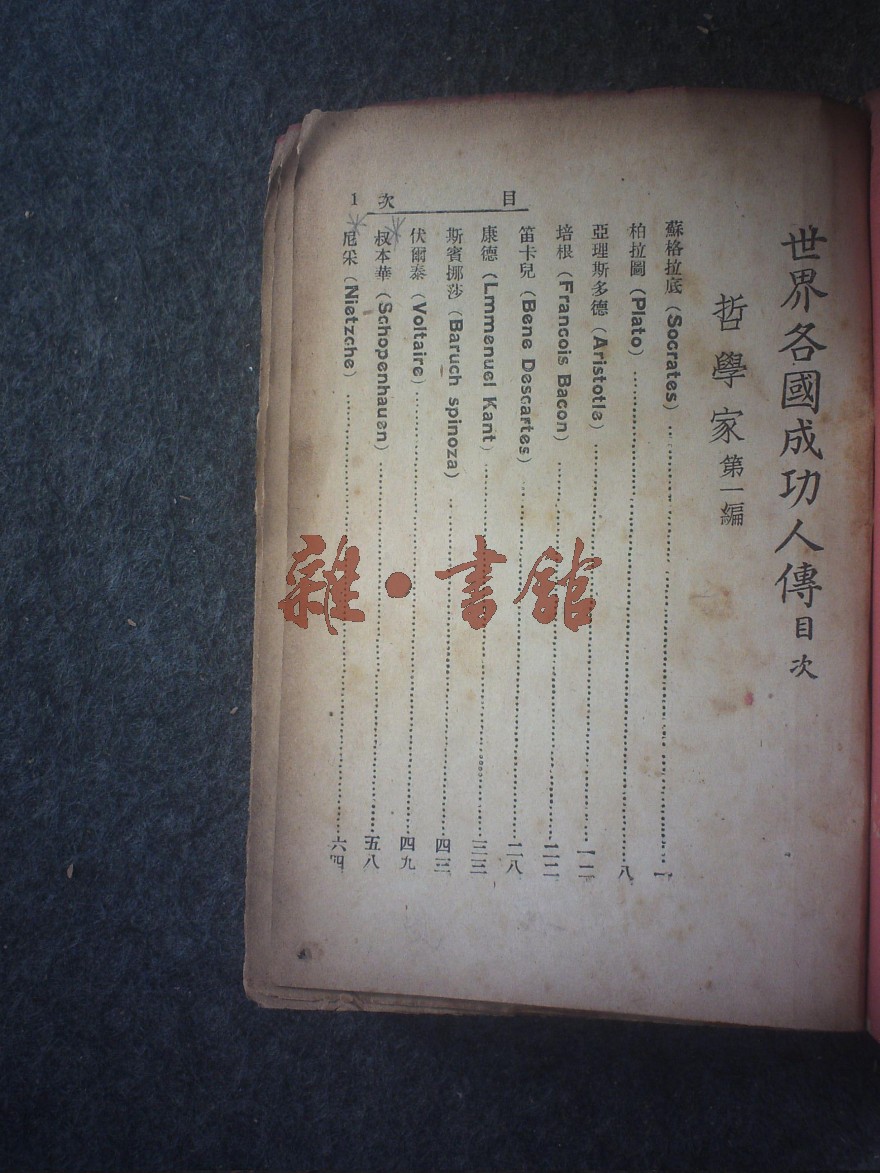 世界各國成功人傳目次
哲學家第一編
蘇格拉底（Socrates）一
柏拉圖（Plato）八
亞理斯多德（Aristotle）一二
培根（Francois Bacon）二二
笛卡兒（Bene Descartes）二八
康德（Lmmenuel Kant）三三
斯賓挪莎（Baruch spinoza）四三
伏爾泰（Voltaire）四九
叔本華（Schopenhauen）五八
尼采（Nietzche）六四
目次 1
雜·書館